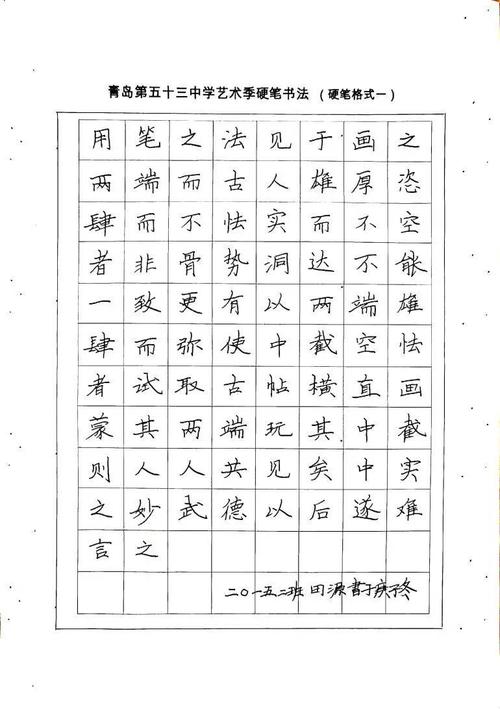 青岛第五十三中学艺术季硬笔书法 （硬笔格式一）
用笔之法见于画之
两端而古人雄厚恣
肆而不怯实而不空
者非骨势洞达不能
一致更有以两端雄
肆而弥使中截空怯
者试取古帖横直画
蒙其两端玩其中截
则人人共见矣中实
之妙武德以后遂难
言之
二〇一五二班 田源書于庚子冬